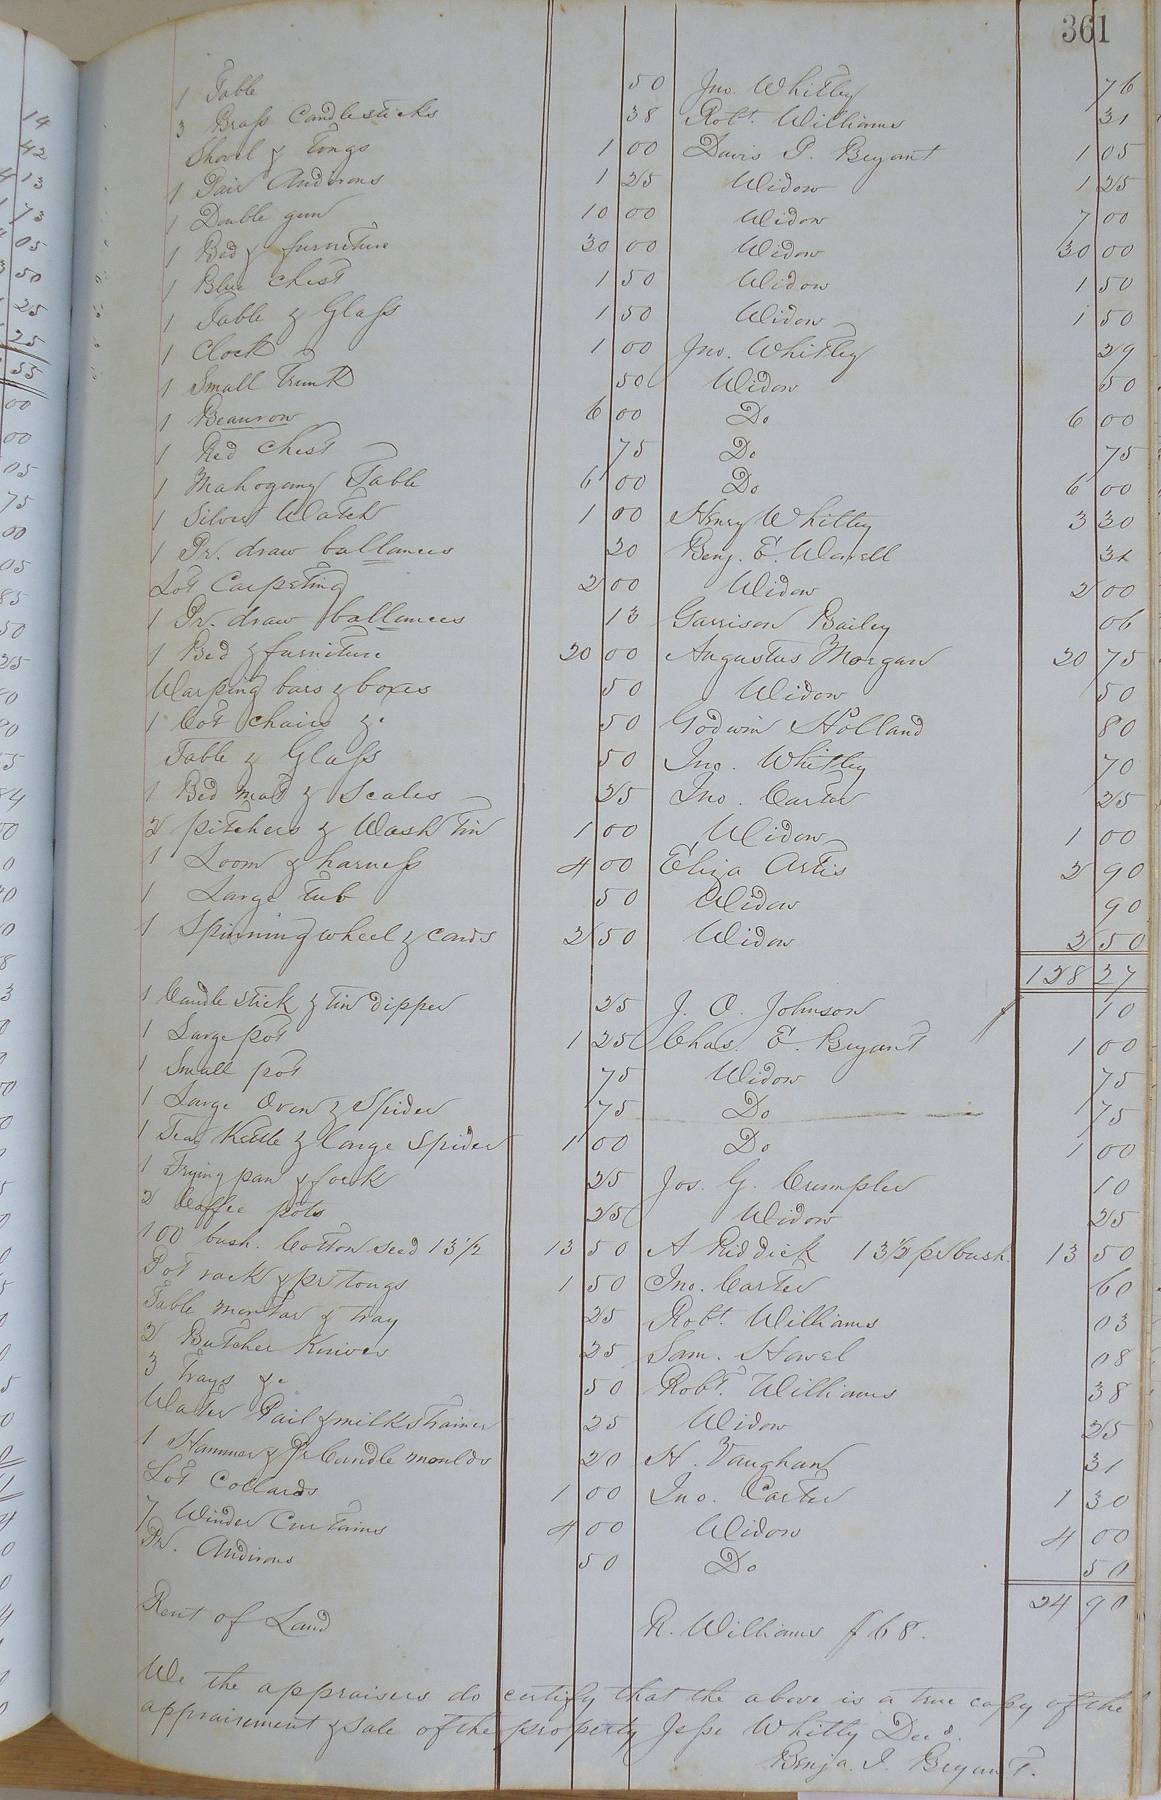 361
1 Table 50 Jno. Whitley 76
3 Brass Candlesticks 38 Robt. Williams 31
Shovel & Tongs 1 00 Davis P. Bryant 1 05
1 Pair Andirons 1 25 Widow 1 25
1 Double gun 10 00 Widow 7 00
1 Bed & furniture 30 00 Widow 30 00
1 Blue Chest 1 50 Widow 1 50
1 Table & Glass 1 50 Widow 1 50
1 Clock 1 00 Jno. Whitley 29
1 Small Trunk 50 Widow 50
1 Beaurow 6 00 Do 6 00
1 Red Chest 75 Do 75
1 Mahogany Table 6 00 Do 6 00
1 Silver Watch 1 00 Henry Whitley 3 30
1 Pr. draw ballances 20 Benj. E. Worrell
Lot Carpeting 2 00 Widow 2 00
1 Pr. draw ballances 13 Garrison Bailey 06
1 Bed & furniture 20 00 Augustus Morgan 20 75
Warping bars & boxes 50 Widow 50
1 Cot chairs &c 50 Godwin Holland 80
Table & Glass 50 Jno. Whitley 70
1 Bed mat & Scales 25 Jno. Carter 25
2 pitchers & Wash Tin 1 00 Widow 1 00
1 Loom & harness 4 00 Eliza Artis 2 90
1 Large Tub 50 Widow 90
1 Spinning wheel & cards 2 50 Widow 2 50
128 27
1 Candle stick & tin dipper 25 J. O. Johnson 10
1 Large pot 1 25 Chas. E. Bryant 1 00
1 Small pot 75 Widow 75
1 Large Oven & Spider 75 Do 75
1 Tea Kettle & large Spider 1 00 Do 1 00
1 Frying pan & fork 25 Jos. G. Crumpler 10
2 Coffee pots 25 Widow 25
100 bush. Cotton seed 13 1/2 13 50 A Riddick 13 1/2 pr bush. 13 50
Pot rack & pr tongs 1 50 Jno. Carter 60
Table mortar & tray 25 Robt. Williams 03
2 Butcher Knives 25 Sam. Howel 08
3 Trays &c 50 Robt. Williams 38
Water Pail & milk strainer 25 Widow 25
1 Hammer & Pr Candle moulds 20 H. Vaughan 31
Lot Collards 1 00 Jno. Carter 1 30
7 Winder Curtains 4 00 Widow 4 00
Pr. Andirons 50 Do 50
24 90
Rent of Land R. Williams $68.
We the appraisers do certify that the above is a true copy of the
appraisement & sale of the property Jesse Whitly Decd.
Benja. I. Bryant.